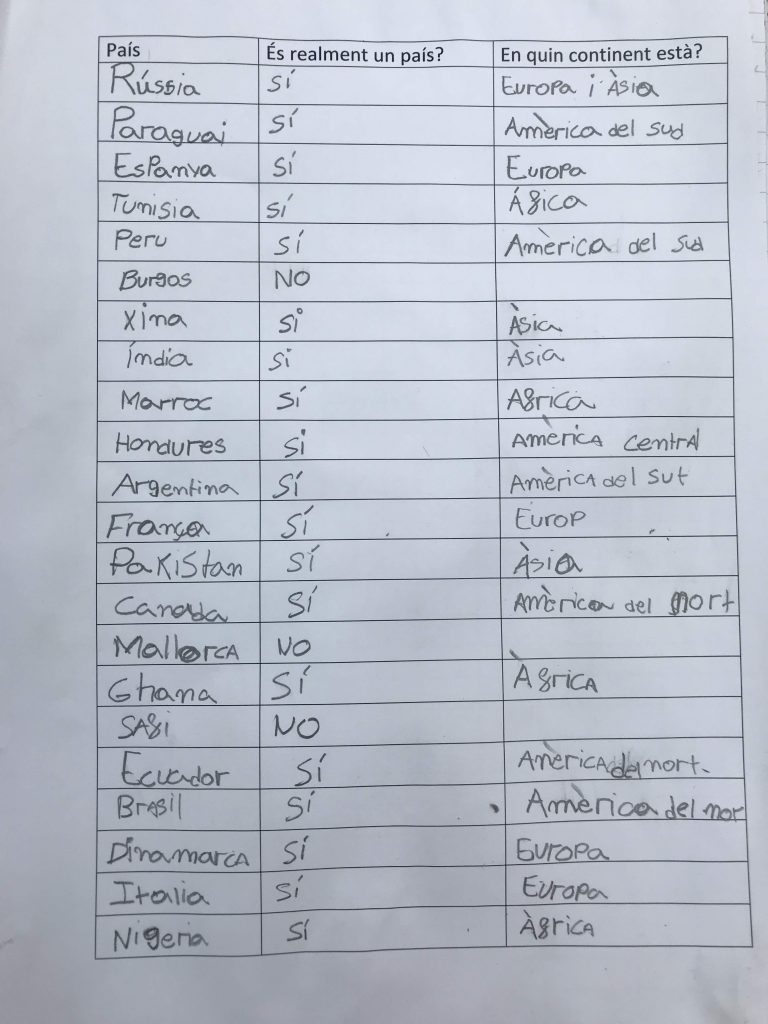 País És realment un país? En quin continent està?
Rússia SÍ Europa i Àsia
Paraguai SÍ Amèrica del sud
Espanya SÍ Europa
Tunisia SÍ Áfica
Peru SÍ Amèrica del sud
Burgos NO
Xina Si Àsia
Índia Si Àsia
Marroc SÍ Africa
Hondures Si Amèrica Central
Argentina SÍ Amèrica del sut
França SÍ Europ
Pakistan SÍ Àsia
Canada SÍ Amèrica del nort
Mallorca NO
Ghana SÍ Àfrica
SAfi NO
Ecuador SÍ Anèrica del nort.
Brasil SÍ Amèrica del nor
Dinamarca SÍ Europa
Italia SÍ Europa
Nigeria SÍ Àfrica